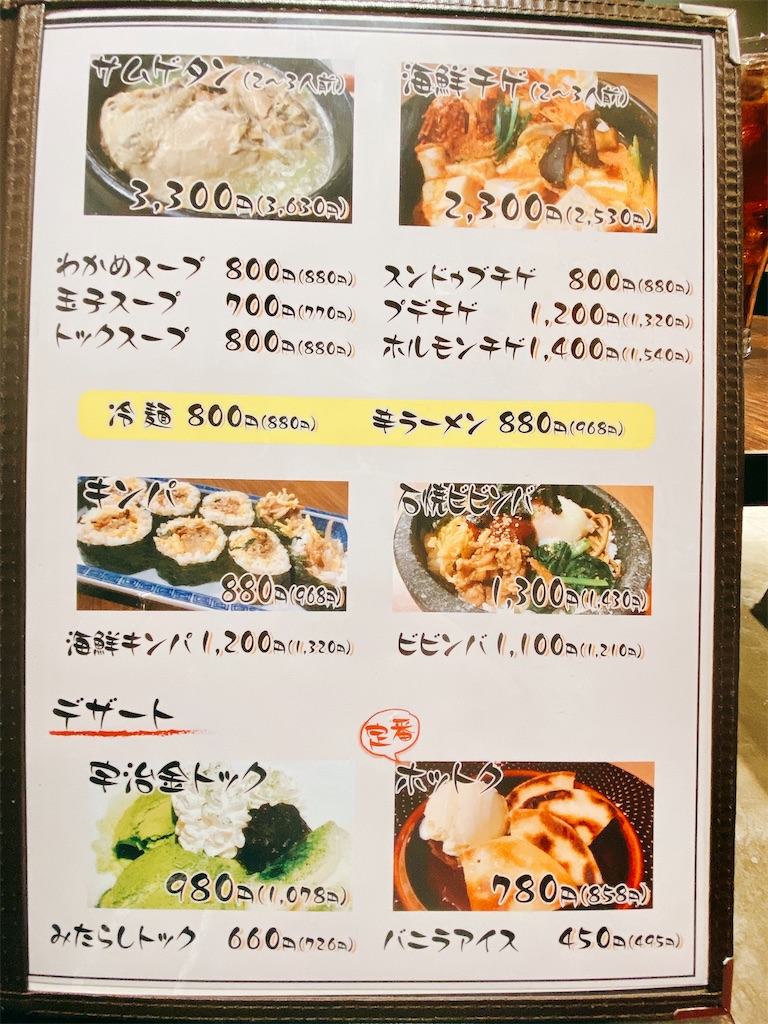 サムゲタン(2〜3人前)
3,300円(3,630円)
海鮮チゲ(2〜3人前)
2,300円(2,530円)
わかめスープ 800円(880円)
玉子スープ 700円(770円)
トックスープ 800円(880円)
スンドゥブチゲ 800円(880円)
プデチゲ 1,200円(1,320円)
ホルモンチゲ 1,400円(1,540円)
冷麺 800円(880円)
辛ラーメン 880円(968円)
キンパ
880円(968円)
石焼ビビンバ
1,300円(1,430円)
海鮮キンパ 1,200円(1,320円)
ビビンバ 1,100円(1,210円)
デザート
宇治金トック
980円(1,078円)
定番
ホットク
780円(858円)
みたらしトック 660円(726円)
バニラアイス 450円(495円)